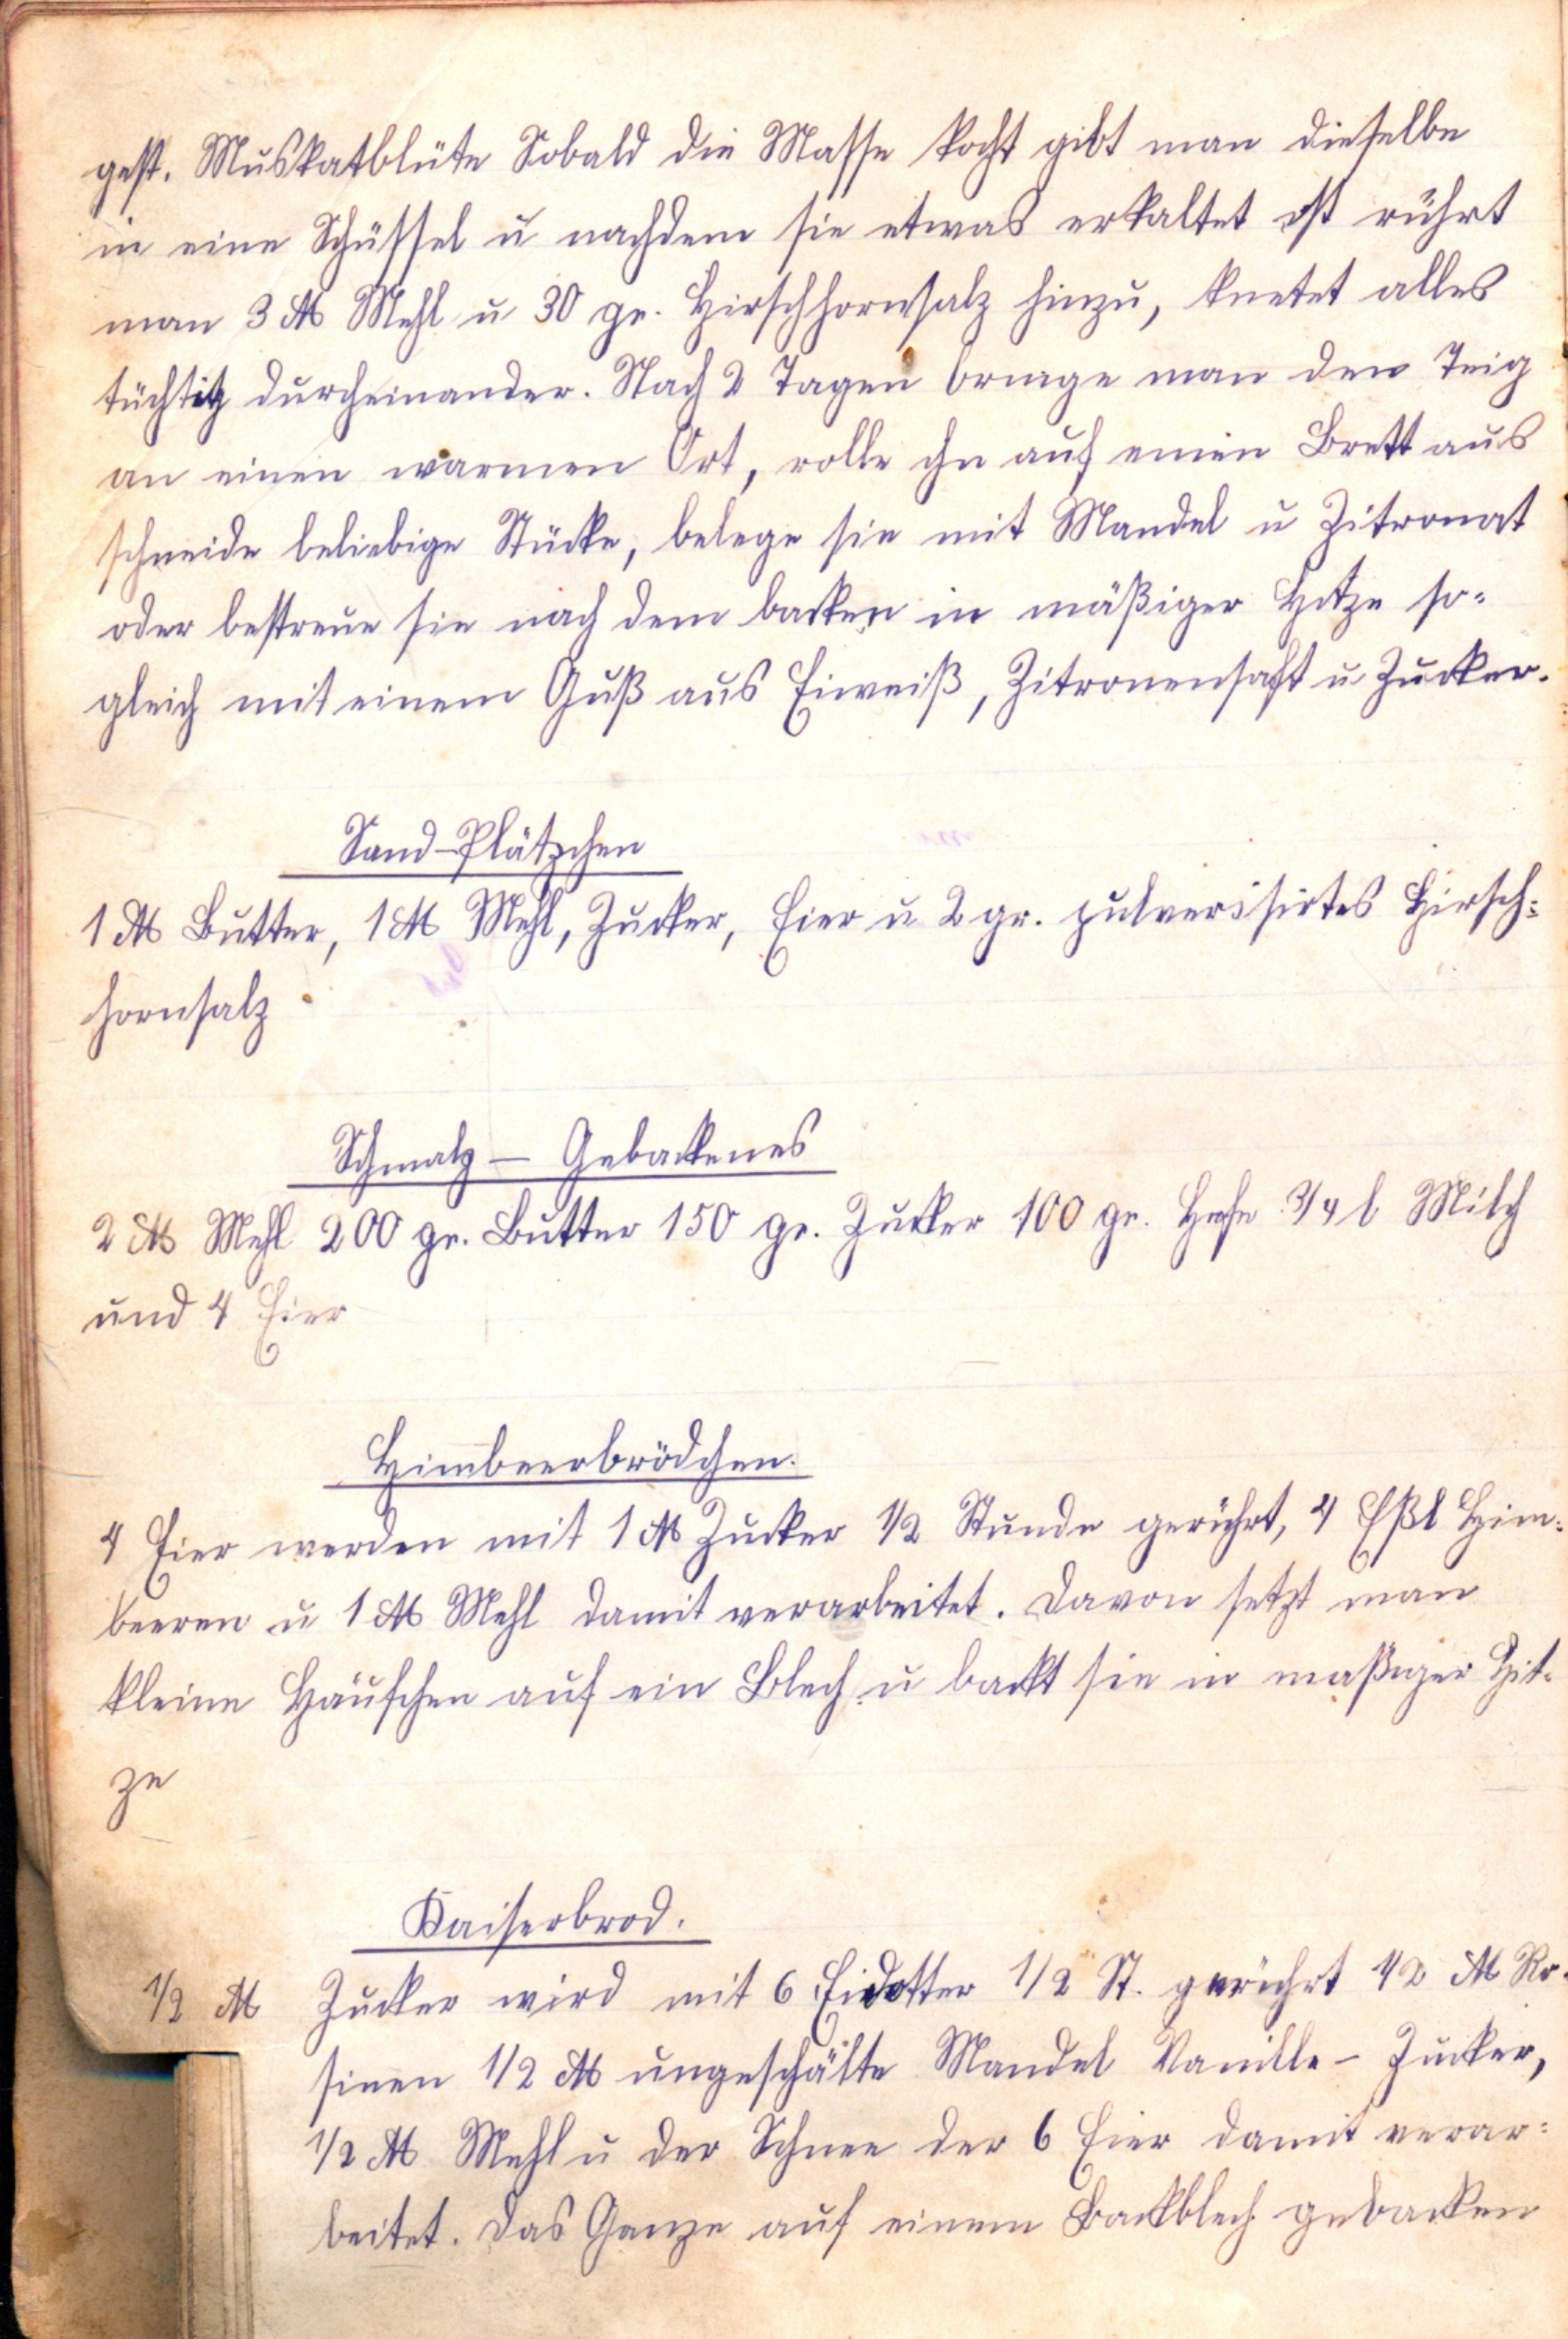 gest. Muskatblüte Sobald die Masse kocht gibt man dieselbe
in eine Schüssel u nachdem sie etwas erkaltet ist rührt
man 3 ℔ Mehl u 30 gr. Hirschhornsalz hinzu, knetet alles
tüchtig durcheinander. Nach 2 Tagen bringe man den Teig
an einen warmen Ort, rolle ihn auf einen Brett aus
schneide beliebige Stücke, belege sie mit Mandel u Zitronat
oder bestreue sie nach dem backen in mäßiger Hitze so-
gleich mit einem Guß aus Eiweiß, Zitronensaft u Zucker.
Sand-Plätzchen
1 ℔ Butter, 1 ℔ Mehl, Zucker, Eier u 2 gr. pulverisirtes Hirsch-
hornsalz
Schmalz – Gebackenes
2 ℔ Mehl 200 gr. Butter 150 gr. Zucker 100 gr. Hefe 3/4 l Milch
und 4 Eier
Himbeerbrödchen.
4 Eier werden mit 1 ℔ Zucker 1/2 Stunde gerührt, 4 Eßl Him-
beeren u 1 ℔ Mehl damit verarbeitet. Davon setzt man
kleine Häufchen auf ein Blech u backt sie in maßiger Hit-
ze
Kaiserbrod.
1/2 ℔ Zucker wird mit 6 Eidotter 1/2 St. gerührt 1/2 ℔ Ro-
sinen 1/2 ℔ ungeschälte Mandel Vanille-Zucker,
1/2 ℔ Mehl u der Schnee der 6 Eier damit verar-
beitet. Das Ganze auf einem Backblech gebacken